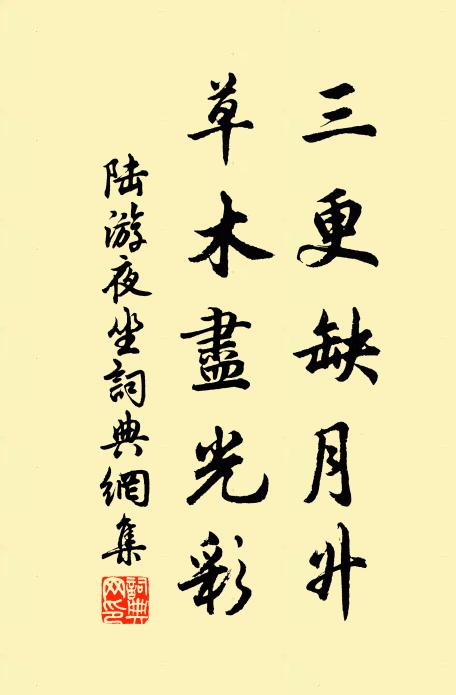 三更缺月升
草木盡光彩
陸游夜坐詞典網集
詞典網印